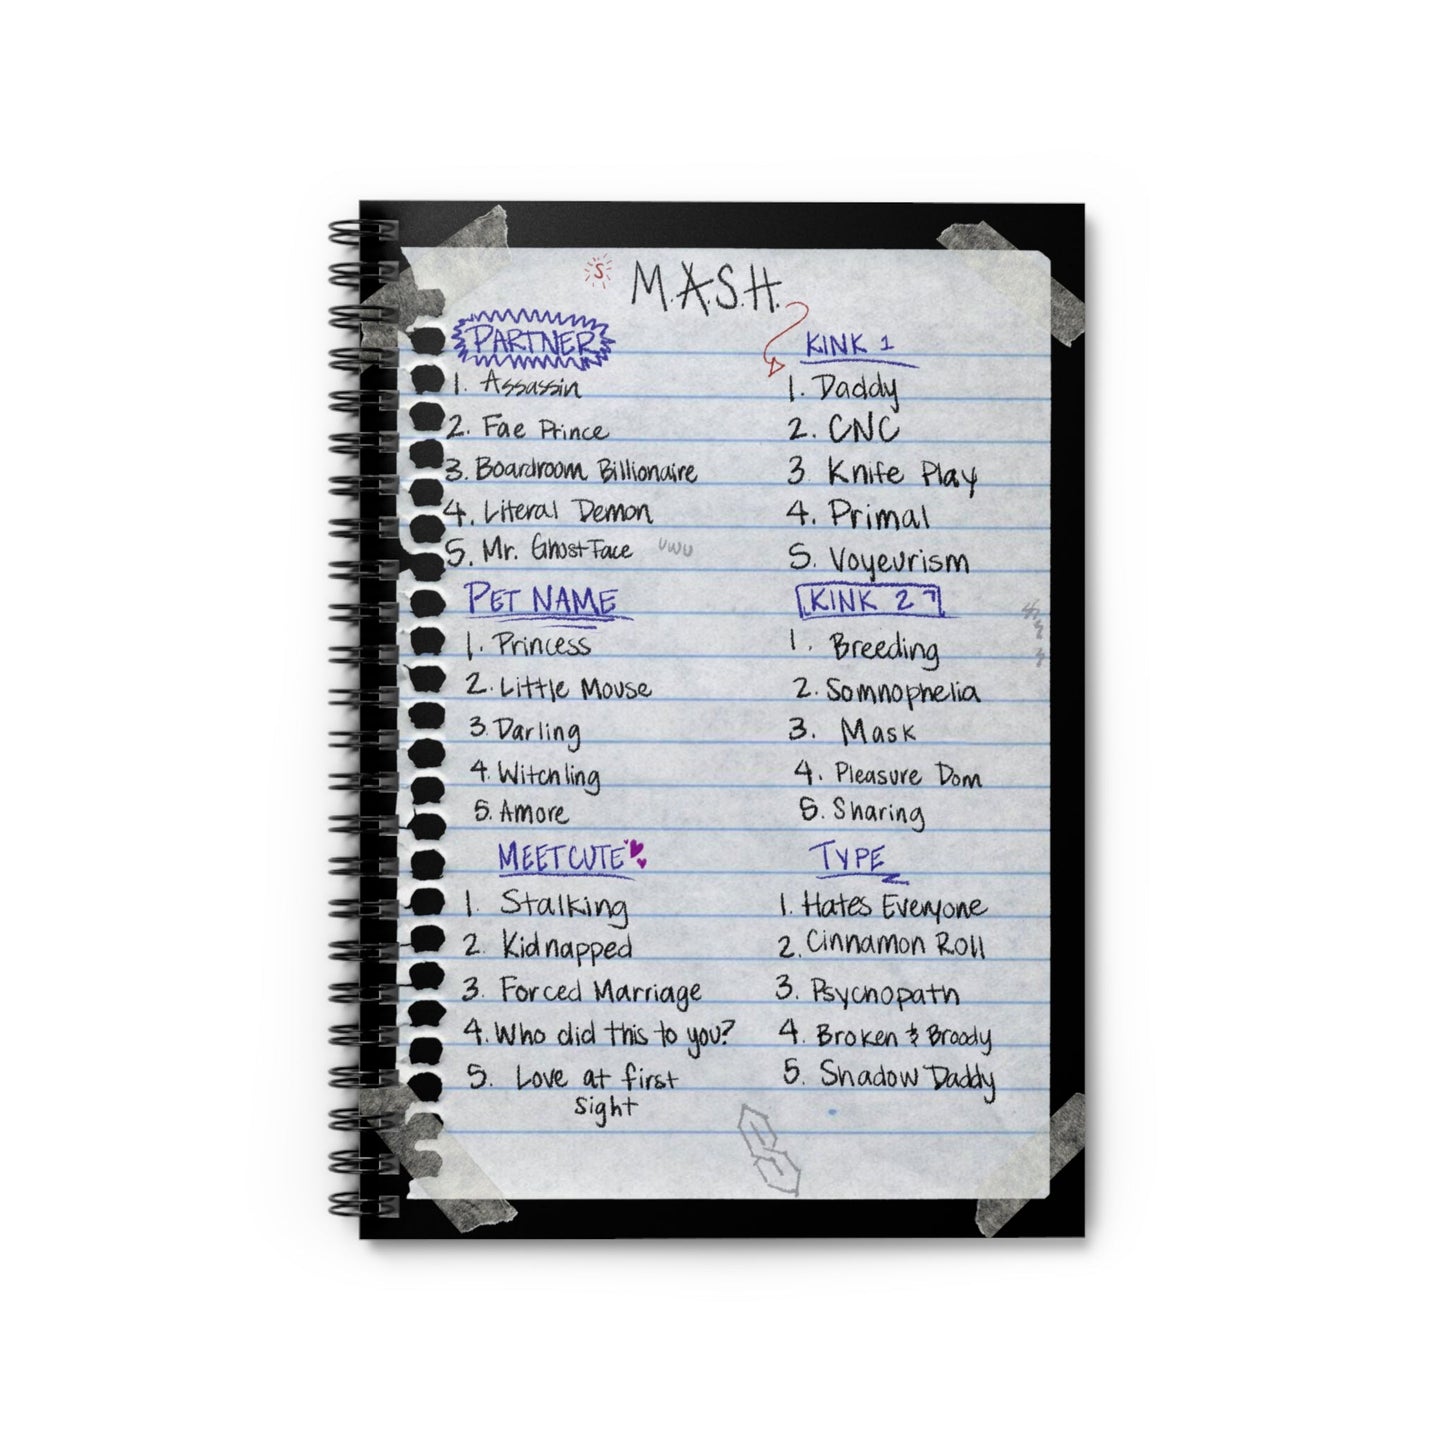 S
M.A.S.H.
PARTNER
1. Assassin
2. Fae Prince
3. Boardroom Billionaire
4. Literal Demon
5. Mr. GhostFace uwu
KINK 1
1. Daddy
2. CNC
3. Knife Play
4. Primal
5. Voyeurism
PET NAME
1. Princess
2. Little Mouse
3. Darling
4. Witchling
5. Amore
KINK 2
1. Breeding
2. Somnophelia
3. Mask
4. Pleasure Dom
5. Sharing
MEETCUTE
1. Stalking
2. Kidnapped
3. Forced Marriage
4. Who did this to you?
5. Love at first
sight
TYPE
1. Hates Everyone
2. Cinnamon Roll
3. Psychopath
4. Broken & Broody
5. Shadow Daddy